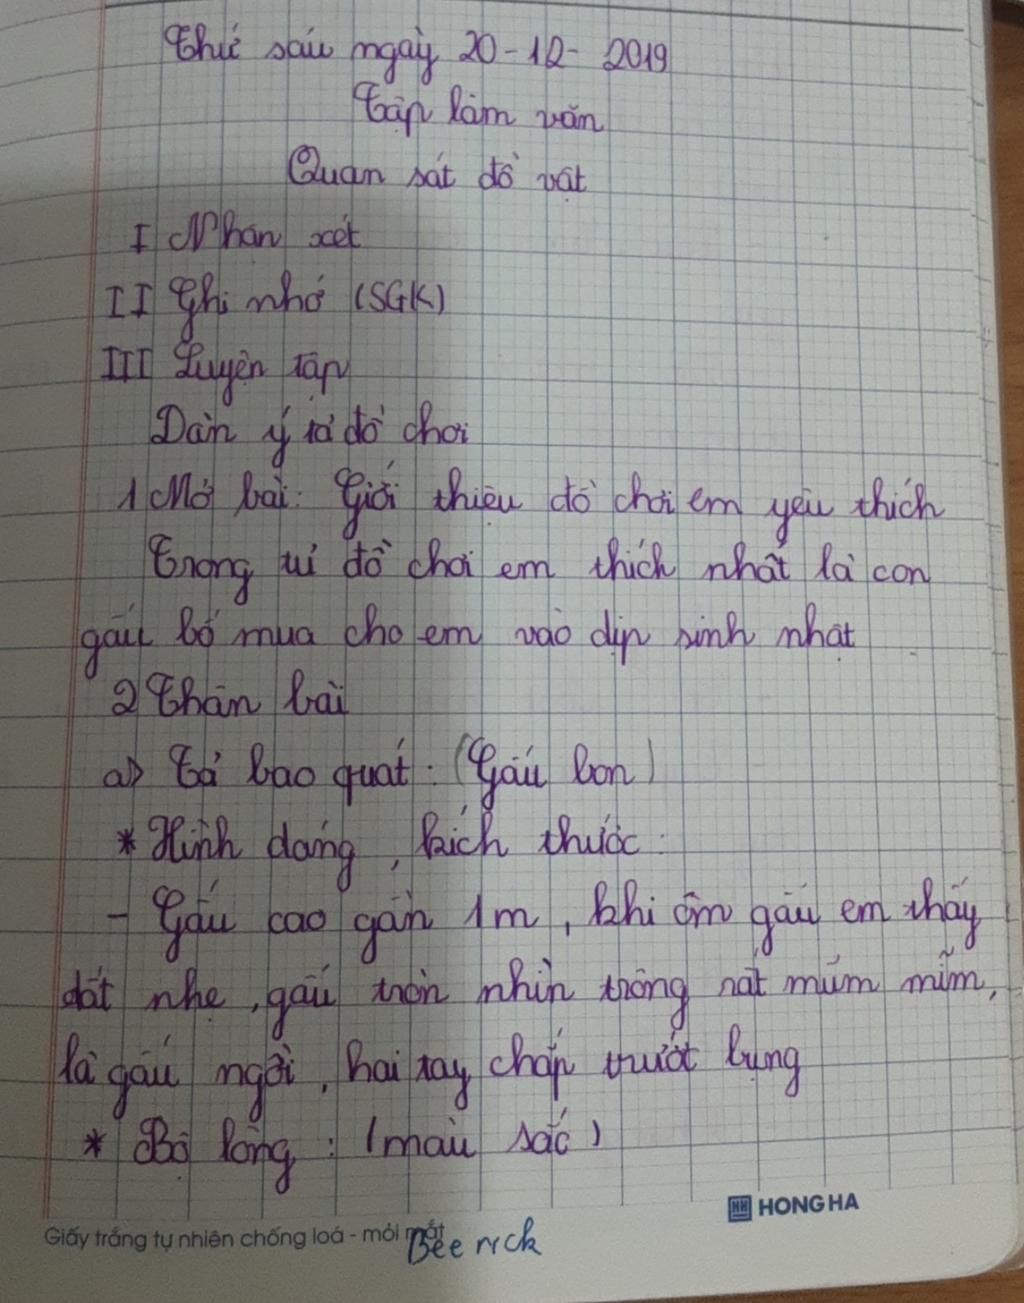 Thứ sáu ngày 20-12-2019
Tập làm văn
Quan sát đồ vật
I Nhận xét
II Ghi nhớ (SGK)
III Luyện tập
Dàn ý tả đồ chơi
1 Mở bài: Giới thiệu đồ chơi em yêu thích
Trong tủ đồ chơi em thích nhất là con
gấu bố mua cho em vào dịp sinh nhật
2 Thân bài
a) Tả bao quát: (Gấu bon)
* Hình dáng, kích thước:
- Gấu cao gần 1m, khi ôm gấu em thấy
dất nhẹ, gấu tròn nhìn trông rất mũm mĩm,
là gấu ngồi, hai tay chắp trước bụng
* Bộ lông: (màu sắc)
HONG HA
Giấy trắng tự nhiên chống loá - mỏi mắt